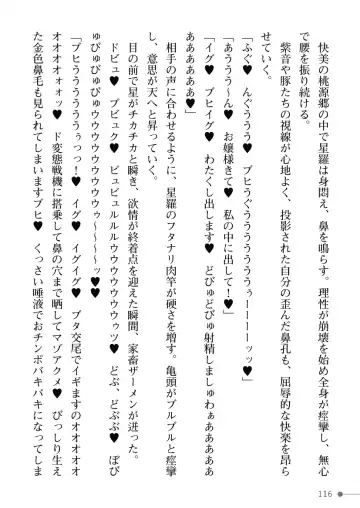 快美の桃源郷の中で星羅は身悶え、鼻を鳴らす。理性が崩壊を始め全身が痙攣、無心
で腰を振り続ける。
紫音や豚たちの視線が心地よく、投影された自分の歪んだ鼻孔も、屈辱的な快楽を昂ら
せていく。
「ふぐ♥　んぐううう♥　ブヒうぐうううううううぅーーーーッッ♥」
「あううう～ん♥　お嬢様きて♥　私の中に出して！♥」
「イグ♥　ブヒイグ♥　わたくし出します♥　どびゅどびゅ射精しましゅわぁああああ
ああああああ♥」
相手の声に合わせるように、星羅のフタナリ肉竿が硬さを増す。亀頭がブルブルと痙攣
し、意思が天へと昇っていく。
目の前で星がチカチカと瞬き、欲情が終着点を迎えた瞬間、家畜ザーメンが迸った。
ドビュ♥　ブビュク♥　ビュビュルルルウウウウウウウウウゥッ♥　どぶ、どぶぶ♥　ぼび
ゅびゅびゅびゅウウウウウウウウゥゥ～～～～ッ♥♥
「ブヒうううううううぅぅっっ！♥　イグ♥　イグイグ♥　ブタ交尾でイギますのオオオオオ
オオオオオォォッ♥　ド変態戦機に搭乗して鼻の穴まで晒してマゾアクメ♥　びっしり生え
た金色鼻毛も見られてしまいますブヒ♥　くっさい唾液でおチンポバキバキになってしま
116